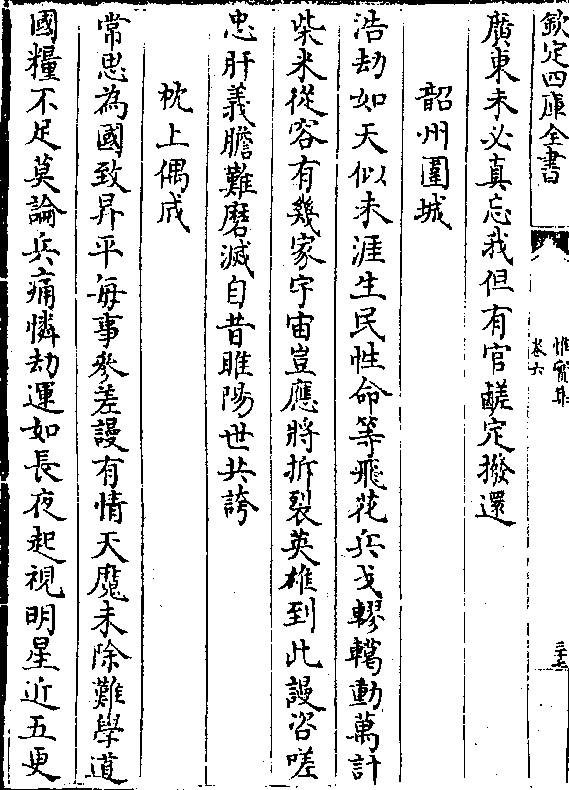 欽定四庫全書
惟實集
卷六
三十七
廣東未必真忘我但有官鹺定撥還
韶州圍城
浩劫如天似未涯生民性命等飛花兵戈轇轕動萬計
柴米從容有幾家宇宙豈應將拆裂英雄到此謾咨嗟
忠肝義膽難磨滅自昔睢陽世共誇
枕上偶成
常思為國致昇平每事參差謾有情天魔未除難學道
國糧不足莫論兵痛憐劫運如長夜起視明星近五更